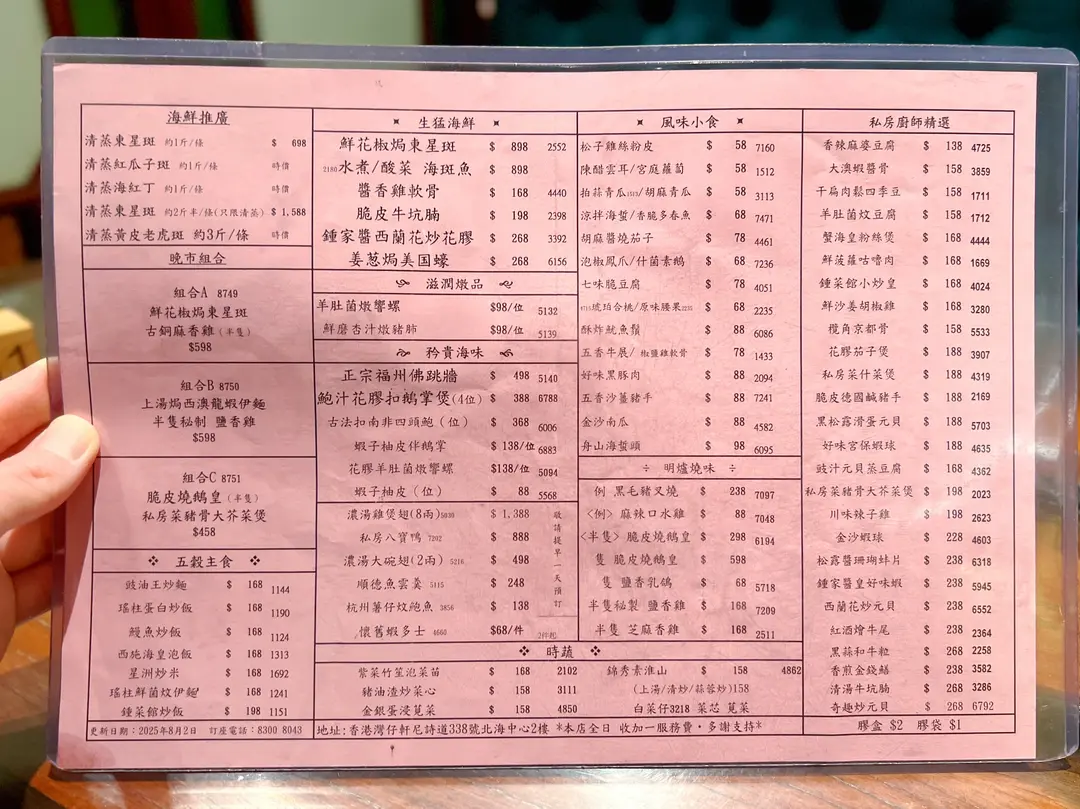 海鮮推廣
清蒸東星斑 約1斤/條 $ 698
清蒸紅瓜子斑 約1斤/條 時價
清蒸海紅丁 約1斤/條 時價
清蒸東星斑 約2斤半/條(只限清蒸) $ 1,588
清蒸黃皮老虎斑 約3斤/條 時價
晚市組合
組合A 8749
鮮花椒焗東星斑
古銅麻香雞 (半隻)
$598
組合B 8750
上湯焗西澳龍蝦伊麵
半隻秘制 鹽香雞
$598
組合C 8751
脆皮燒鵝皇 (半隻)
私房菜豬骨大芥菜煲
$458
五穀主食
豉油王炒麵 $ 168 1144
瑤柱蛋白炒飯 $ 168 1190
鰻魚炒飯 $ 168 1124
西施海皇泡飯 $ 168 1313
星洲炒米 $ 168 1692
瑤柱鮮菌炆伊麵 $ 168 1241
鍾菜館炒飯 $ 198 1151
更新日期：2025年8月2日 訂座電話：8300 8043
生猛海鮮
鮮花椒焗東星斑 $ 898 2552
2180水煮/酸菜 海斑魚 $ 898
醬香雞軟骨 $ 168 4440
脆皮牛坑腩 $ 198 2398
鍾家醬西蘭花炒花膠 $ 268 3392
姜蔥焗美国蠔 $ 268 6156
滋潤燉品
羊肚菌燉響螺 $98/位 5132
鮮磨杏汁燉豬肺 $98/位 5139
矜貴海味
正宗福州佛跳牆 $ 498 5140
鮑汁花膠扣鵝掌煲(4位) $ 388 6788
古法扣南非四頭鮑（位） $ 368 6006
蝦子柚皮伴鵝掌 $ 138/位 6883
花膠羊肚菌燉響螺 $138/位 5094
蝦子柚皮（位） $ 88 5568
濃湯雞煲翅(8兩)5030 $ 1,388
私房八寶鴨 7202 $ 888
濃湯大碗翅(2兩) 5216 $ 498
順德魚雲羹 5115 $ 248
杭州薯仔炆鮑魚 3856 $ 138
懷舊蝦多士 4660 $68/件 2件起
敬請提早一天預訂
風味小食
松子雞絲粉皮 $ 58 7160
陳醋雲耳/宮庭蘿蔔 $ 58 1512
拍蒜青瓜1513/胡麻青瓜 $ 58 3113
涼拌海蜇/香脆多春魚 $ 68 7471
胡麻醬燒茄子 $ 78 4461
泡椒鳳爪/什菌素鵝 $ 68 7236
七味脆豆腐 $ 78 4051
琥珀合桃/原味腰果 $ 68 2235
酥炸魷魚鬚 $ 88 6086
五香牛展/ 椒鹽雞軟骨 $ 78 1433
好味黑豚肉 $ 88 2094
五香沙薑豬手 $ 88 7241
金沙南瓜 $ 88 4582
舟山海蜇頭 $ 98 6095
明爐燒味
例 黑毛豬叉燒 $ 238 7097
<例> 麻辣口水雞 $ 88 7048
<半隻> 脆皮燒鵝皇 $ 298 6194
隻 脆皮燒鵝皇 $ 598
隻 鹽香乳鴿 $ 68 5718
半隻秘製 鹽香雞 $ 168 7209
半隻 芝麻香雞 $ 168 2511
時蔬
紫菜竹笙泡菜苗 $ 168 2102 錦秀素淮山 $ 158 4862
豬油渣炒菜心 $ 158 3111 (上湯/清炒/蒜蓉炒)158
金銀蛋浸莧菜 $ 158 4850 白菜仔3218 菜芯 莧菜
地址:香港灣仔軒尼詩道338號北海中心2樓 *本店全日 收加一服務費,多謝支持*
私房廚師精選
香辣麻婆豆腐 $ 138 4725
大澳蝦醬骨 $ 158 3859
干扁肉鬆四季豆 $ 158 1711
羊肚菌炆豆腐 $ 158 1712
蟹海皇粉絲煲 $ 168 4444
鮮菠蘿咕嚕肉 $ 168 1669
鍾菜館小炒皇 $ 168 4024
鮮沙姜胡椒雞 $ 168 3280
欖角京都骨 $ 158 5533
花膠茄子煲 $ 188 3907
私房菜什菜煲 $ 188 4319
脆皮德國鹹豬手 $ 188 2169
黑松露滑蛋元貝 $ 188 5703
好味宮保蝦球 $ 188 4635
豉汁元貝蒸豆腐 $ 168 4362
私房菜豬骨大芥菜煲 $ 198 2023
川味辣子雞 $ 198 2623
金沙蝦球 $ 228 4603
松露醬珊瑚蚌片 $ 238 6318
鍾家醬皇好味蝦 $ 238 5945
西蘭花炒元貝 $ 238 6552
紅酒燴牛尾 $ 238 2364
黑蒜和牛粒 $ 268 2258
香煎金錢鱔 $ 238 3582
清湯牛坑腩 $ 268 3286
奇趣炒元貝 $ 268 6792
膠盒 $2 膠袋 $1